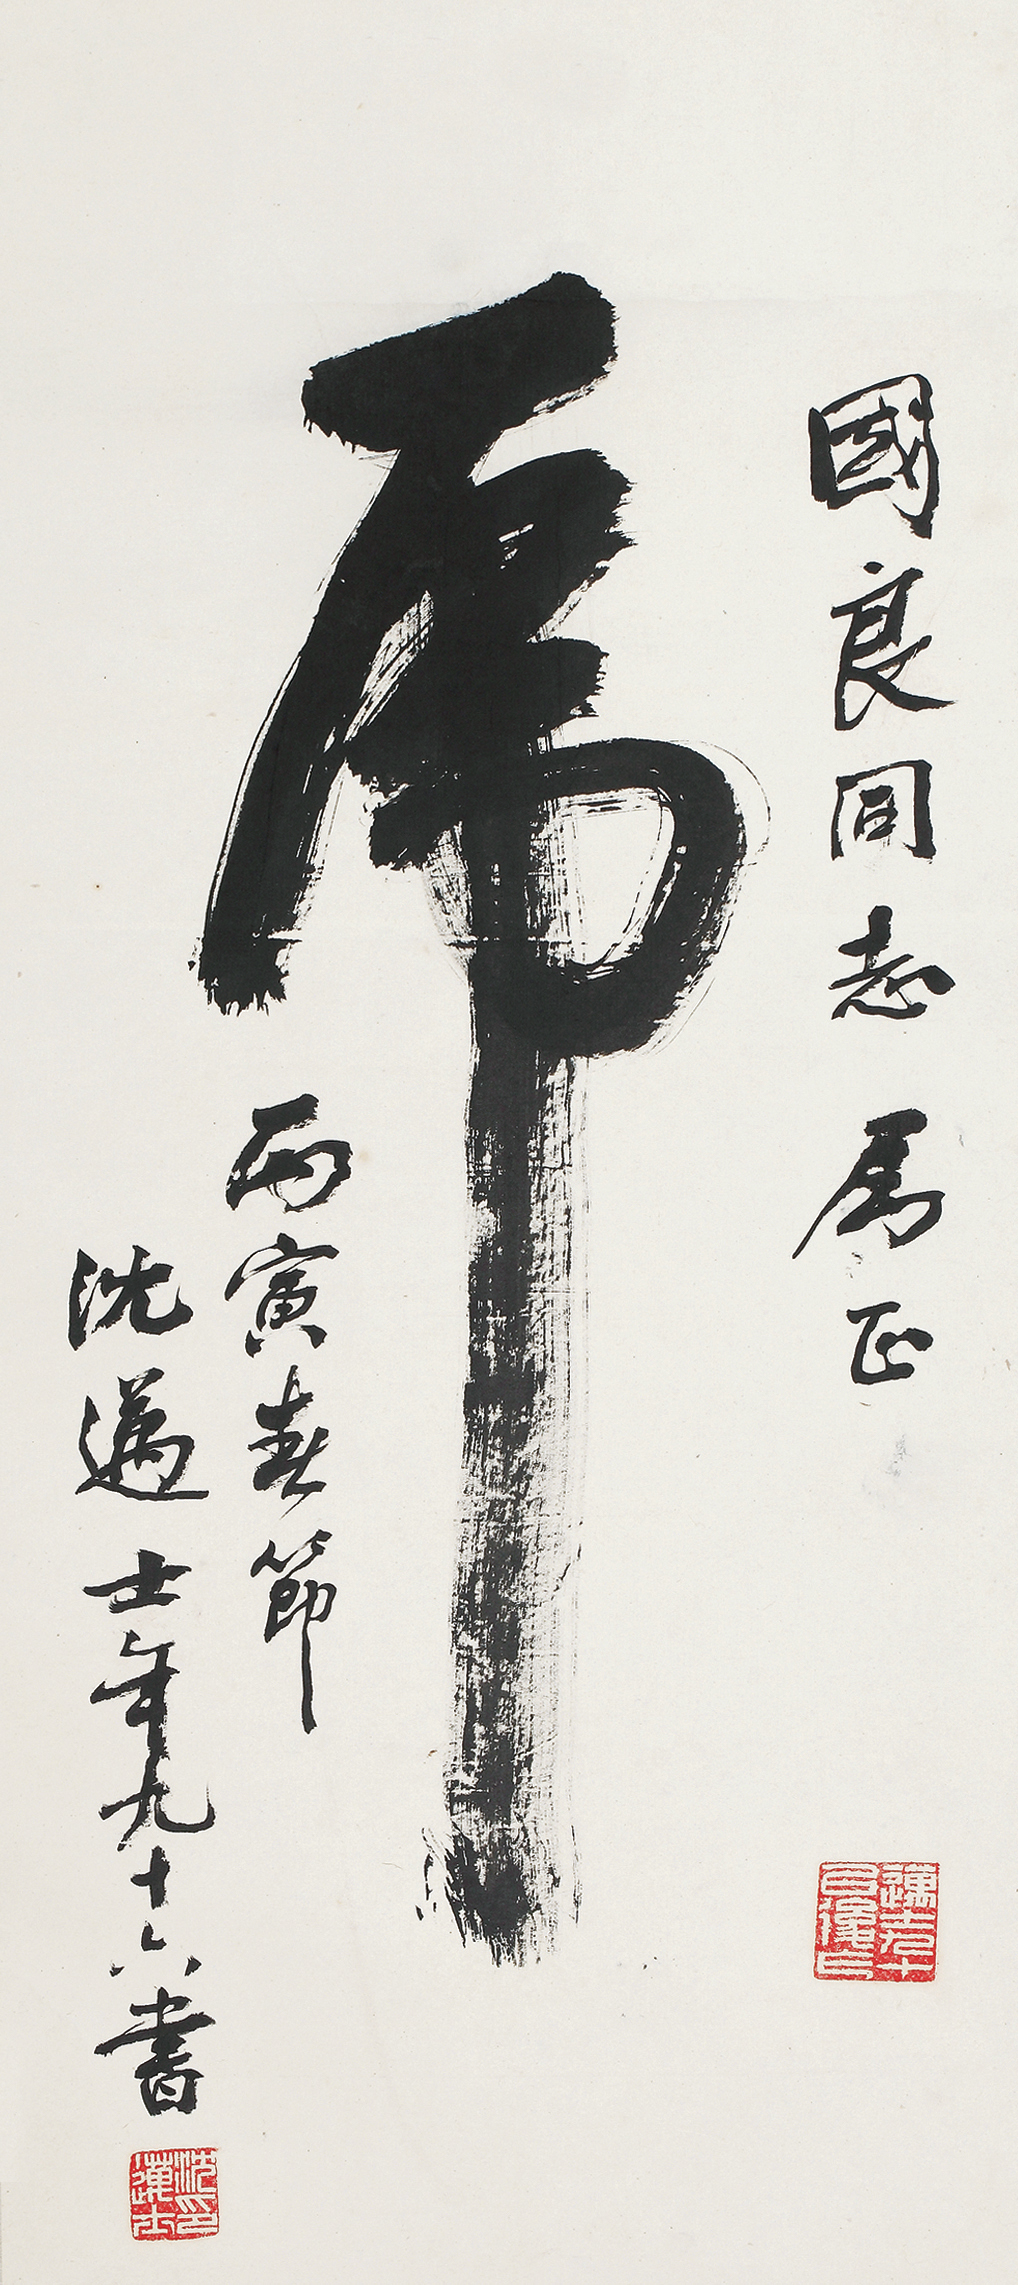 國良同志屬正
虎
丙寅春節
沈邁士年九十六書